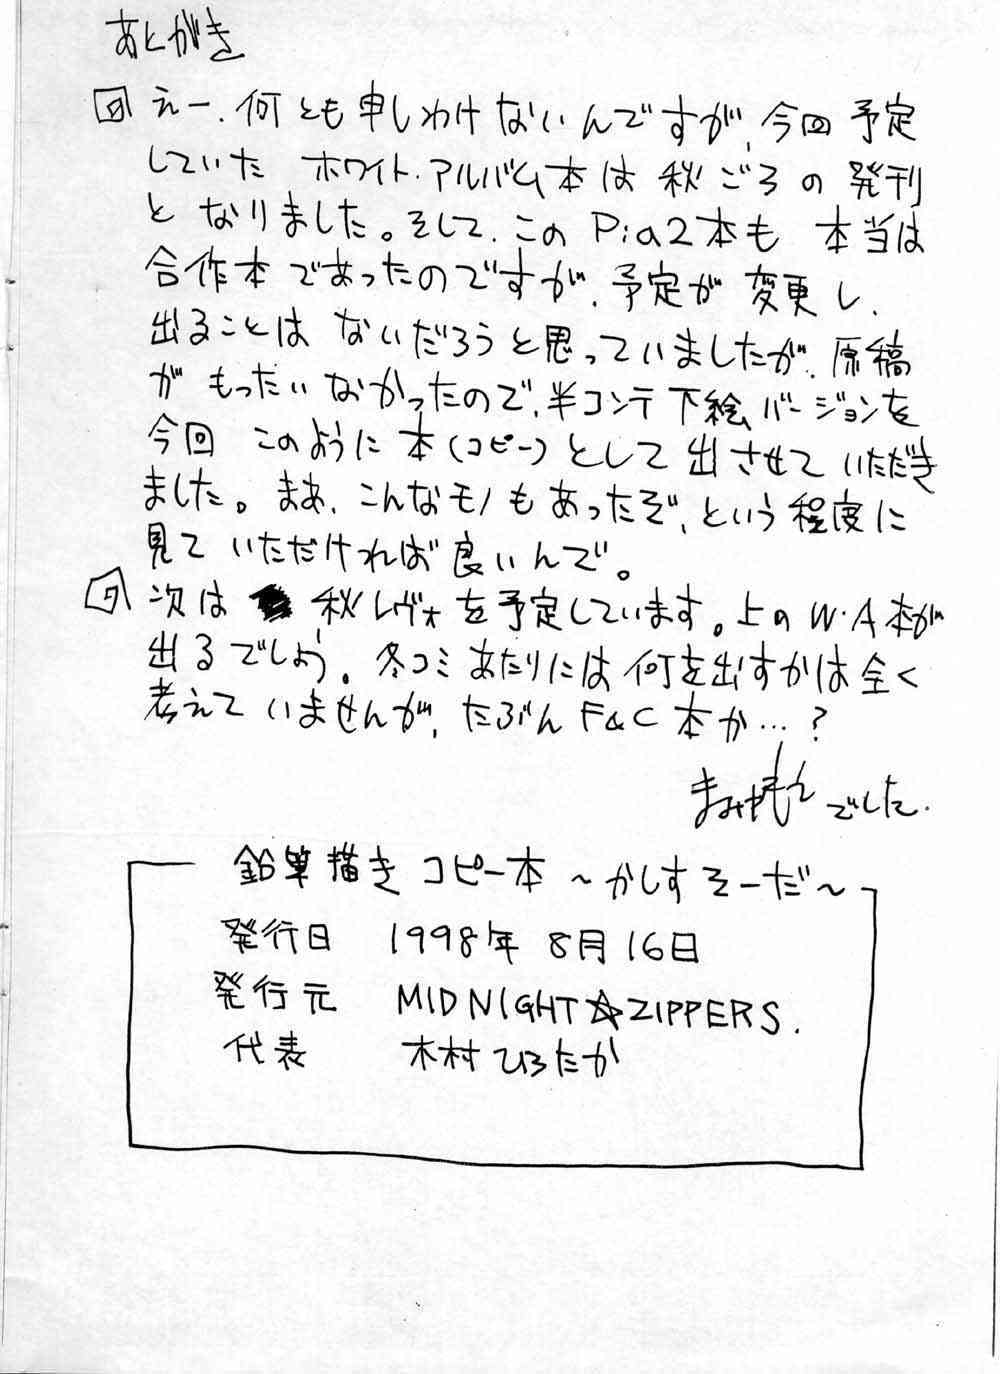 あとがき
えー、何とも申しわけないんですが、今回 予定
していた ホワイト・アルバム本は 秋ごろの 発刊
と なりました。そして、この Pia2本も 本当は
合作本 であったのですが、予定が 変更し、
出ることは ないだろうと思っていましたが、原稿
が もったいなかったので、半コンテ下絵バージョンを
今回 このように 本(コピー)として 出させて いただき
ました。まあ、こんなモノもあったぞ、という 程度に
見て いただければ 良いんで。
次は 秋レヴォを予定しています。上の W・A本が
出るでしょう。冬コミあたりには 何を出すかは 全く
考えて いませんが、たぶん F&C 本か…?
でした.
鉛筆描き コピー本 〜かしすそーだ〜
発行日 1998年 8月 16日
発行元 MIDNIGHT☆ZIPPERS.
代表 木村ひろたか